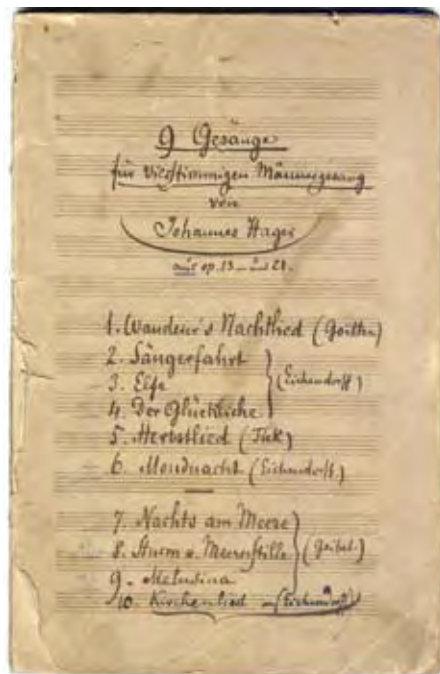 9 Gesänge
für vierstimmigen Männergesang
von
Johannes Hager
aus op. 13 und 28.
1. Wandrer's Nachtlied (Goethe)
2. Sängerfahrt
3. Elfe
(Eichendorff)
4. Der Glückliche
5. Herbstlied (Tiek)
6. Mondnacht (Eichendorff)
7. Nachts am Meere
8. Sturm u. Meeresstille
(Geibel)
9. Melusina
10. Kirchenlied (Eichendorff)